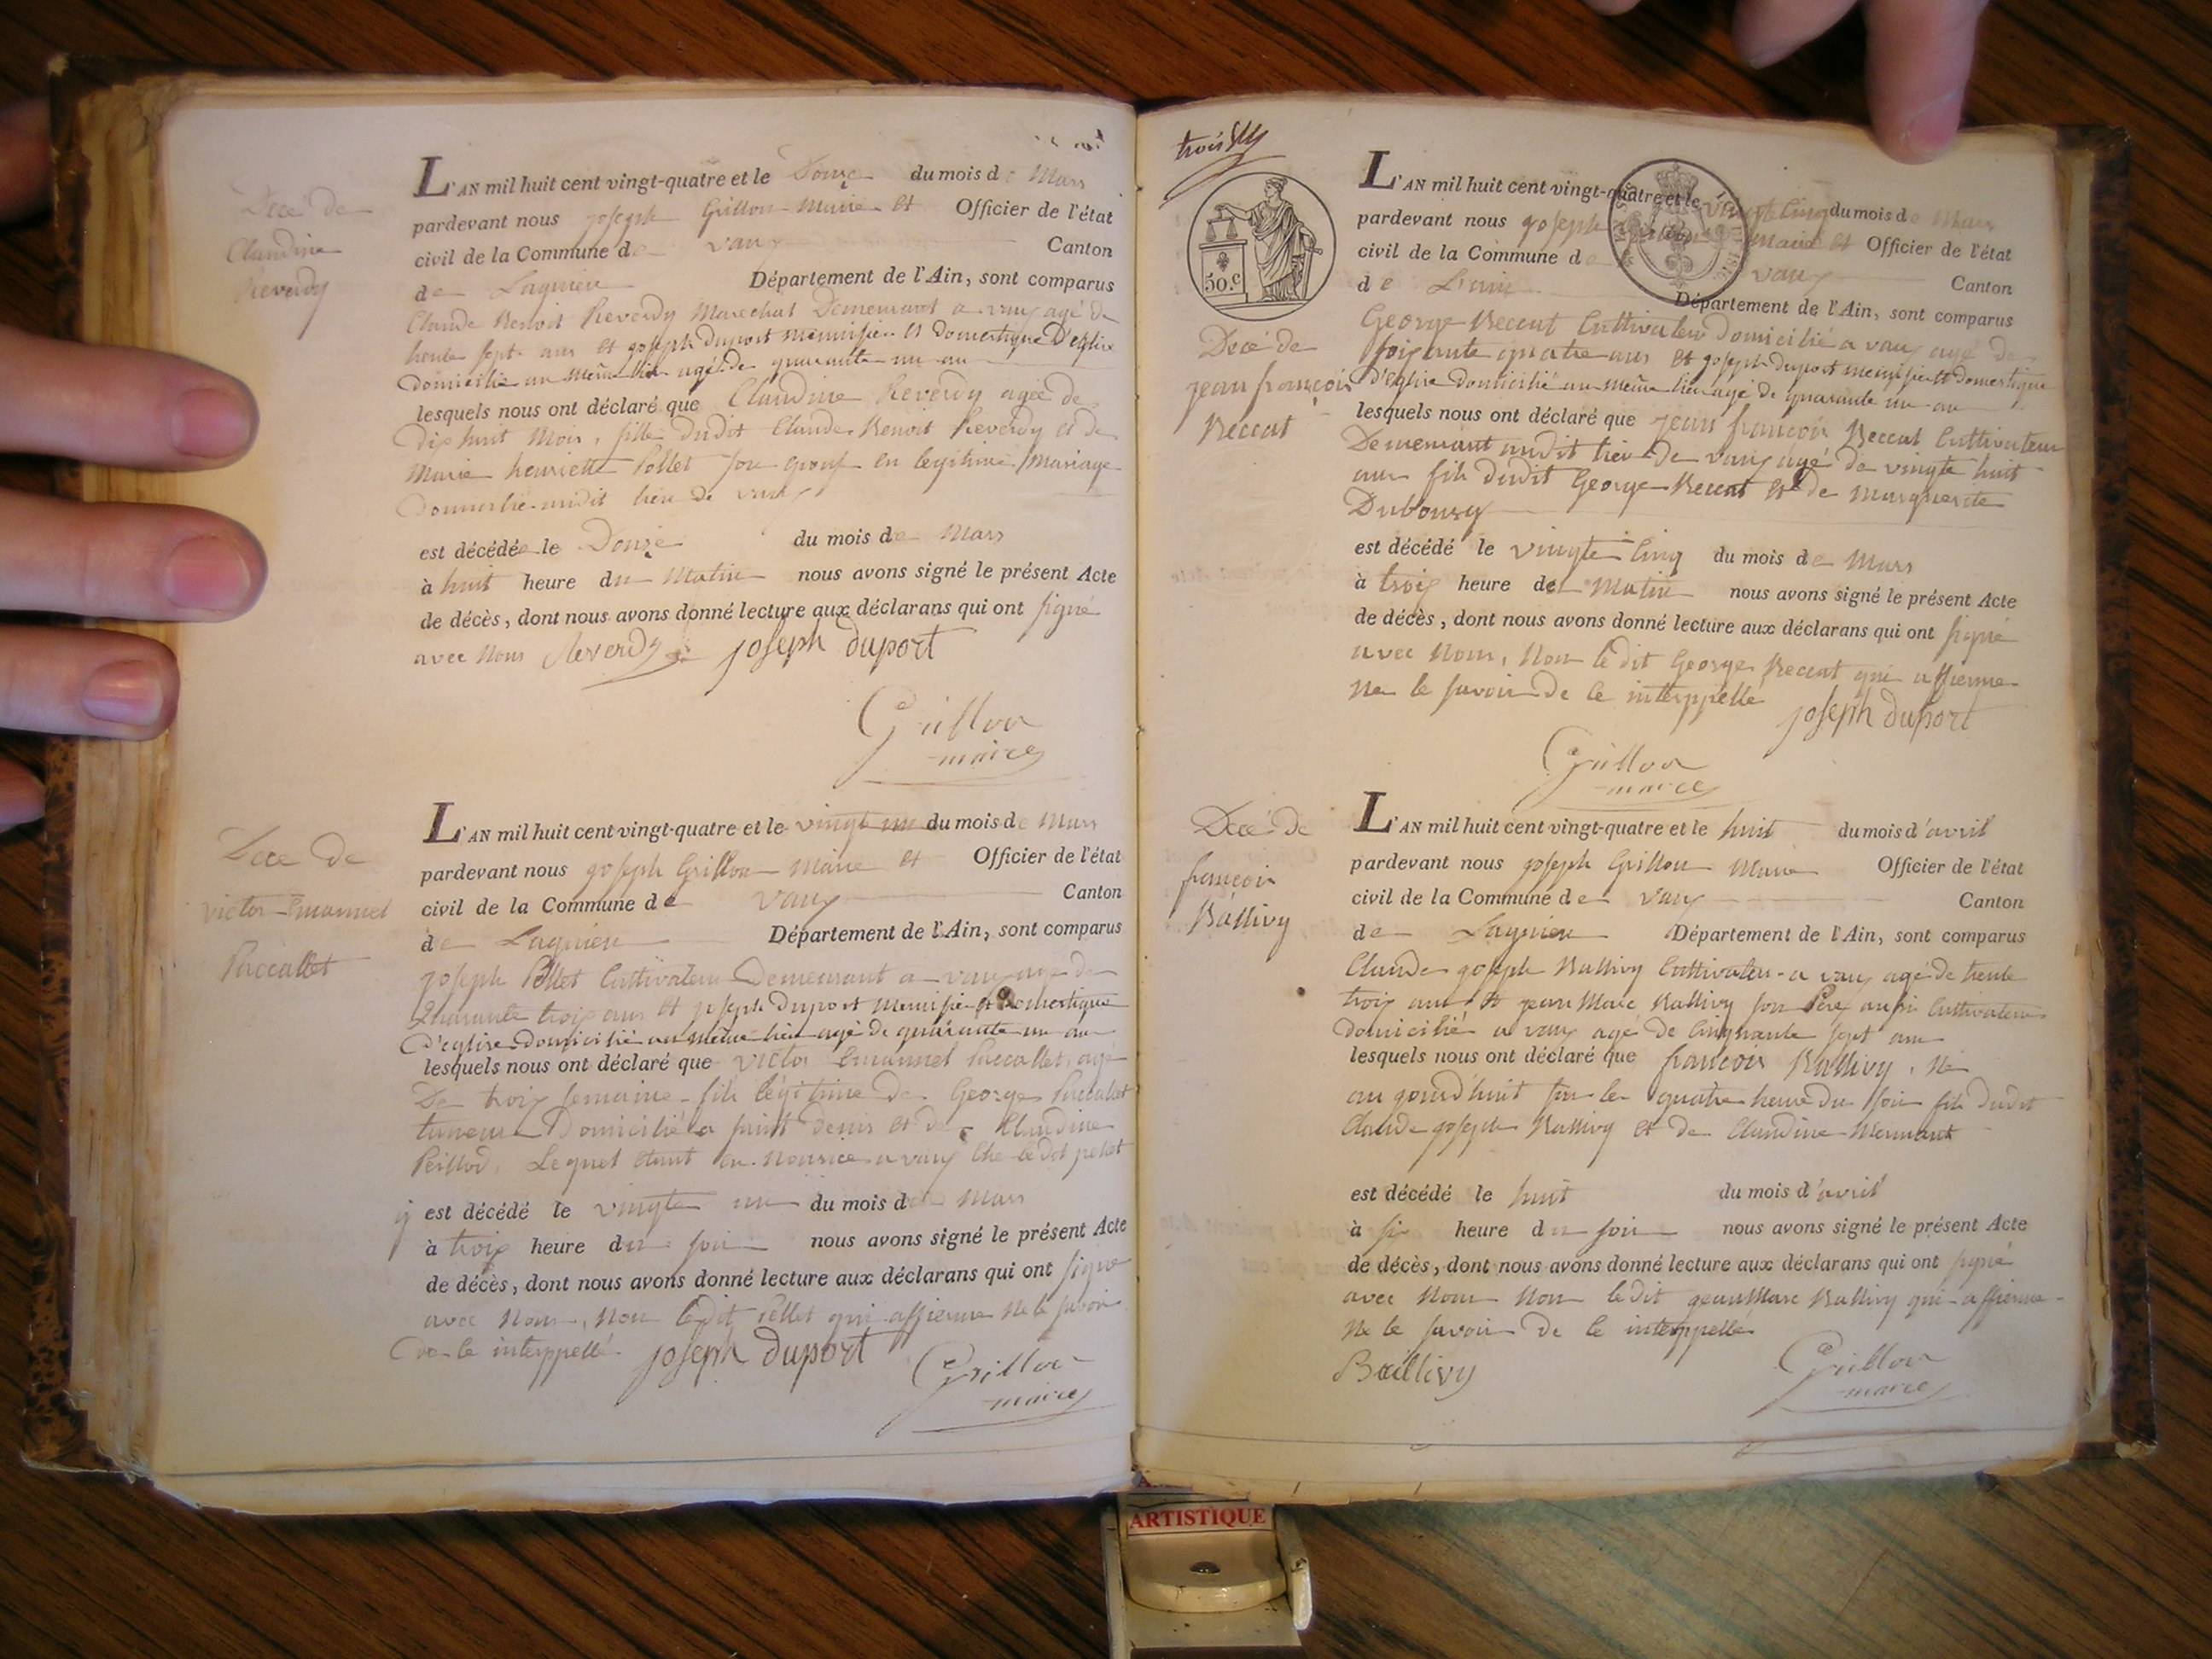 Décé de
Claudine
Reverdy
L'AN mil huit cent vingt-quatre et le Douze du mois de Mars
pardevant nous joseph Grillon Maire et Officier de l'état
civil de la Commune de vaux Canton
de Lagnieu Département de l'Ain, sont comparus
Claude Benoit Reverdy Marechal Demeurant a vaux agé de
trente sept ans et joseph duport menuisier et domestique D'eglise
domicilié au même lieu agé de quarante un an
lesquels nous ont déclaré que Claudine Reverdy agée de
Dix huit Mois, fille dudit Claude Benoit Reverdy et de
Marie henriette Pollet son epouse en legitime Mariage
Domicilié audit lieu de vaux
est décédée le Douze du mois de Mars
à huit heure du Matin nous avons signé le présent Acte
de décès, dont nous avons donné lecture aux déclarans qui ont signé
avec Nous Reverdy joseph duport
Grillon
maire
Décé De
victor Emanuel
Paccallet
L'AN mil huit cent vingt-quatre et le vingt un du mois de Mars
pardevant nous joseph Grillon Maire et Officier de l'état
civil de la Commune de vaux Canton
de Lagnieu Département de l'Ain, sont comparus
joseph Pollet Cultivateur Demeurant a vaux agé de
Quarante trois ans et joseph duport Menuisier et domestique
D'eglise domicilié au même lieu agé de quarante un an
lesquels nous ont déclaré que victor Emanuel Paccallet, agé
De trois semaine fils légitime de George Paccallet
tuneur Domicilié a saint denis et de Claudine
Peillod, Lequel étant en nourice a vaux Che le dit pollet
y est décédé le vingte un du mois de Mars
à trois heure du soir nous avons signé le présent Acte
de décès, dont nous avons donné lecture aux déclarans qui ont signé
avec Nous, Non ledit pollet qui affierme Ne le savoir
De le interppellé. joseph duport Grillon
maire
trois
50.c
Décé de
jean françois
Beccat
L'AN mil huit cent vingt-quatre et le vingt Cinq du mois de Mars
pardevant nous joseph Grillon Maire et Officier de l'état
civil de la Commune de vaux Canton
de Département de l'Ain, sont comparus
George Beccat Cultivateur Domicilié a vaux agé de
soixante quatre ans et joseph duport menuisier et domestique
d'eglise domicilié au même lieu agé de quarante un an
lesquels nous ont déclaré que jean françois Beccat Cultivateur
Demeurant audit lieu de vaux agé de vingte huit
ans fils dudit George Beccat et de Marguerite
Dubourg
est décédé le vingte Cinq du mois de Mars
à trois heure du Matin nous avons signé le présent Acte
de décès, dont nous avons donné lecture aux déclarans qui ont signé
avec Nous, Non le dit George Beccat qui affierme
Ne le savoir De le interppellé joseph duport
Grillon
maire
Décé de
françois
Ballivy
L'AN mil huit cent vingt-quatre et le huit du mois d'avril
pardevant nous joseph Grillon Maire Officier de l'état
civil de la Commune de vaux Canton
de Lagnieu Département de l'Ain, sont comparus
Claude joseph Ballivy Cultivateur a vaux agé de trente
trois ans et jean Marc Ballivy son Père aussi Cultivateur
domicilié a vaux agé de Cinquante sept ans
lesquels nous ont déclaré que françois Ballivy, Né
au jourd'huit sur les quatre heure du soir fils dudit
Claude joseph Ballivy et de Claudine
est décédé le huit du mois d'avril
à six heure du soir nous avons signé le présent Acte
de décès, dont nous avons donné lecture aux déclarans qui ont signé
avec Nous Non ledit jean Marc Ballivy qui affierme
Ne le savoir De le interppellé
Baillivy Grillon
maire
ARTISTIQUE